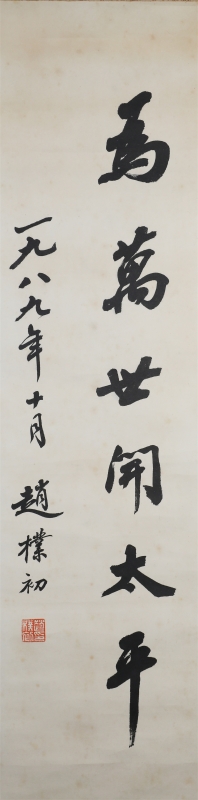 為萬世開太平
一九八九年十月 趙樸初